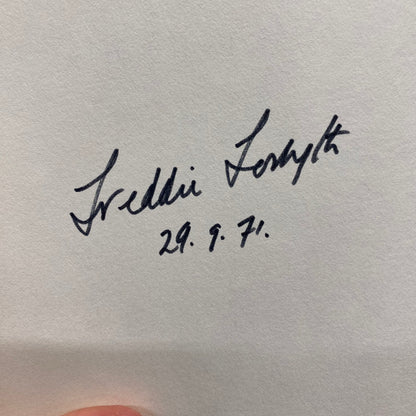 Freddie Forsyth
29.9.71.